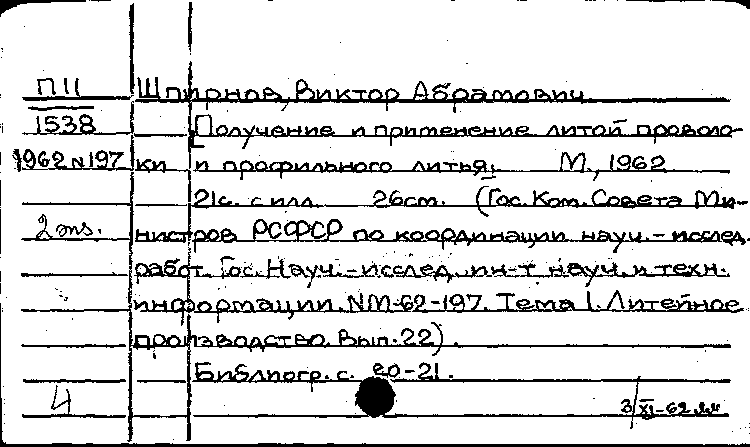 П11 Шпирнов, Виктор Абрамович
1538 [Получение и применение литой проволо-
1962 N 197 ки и профильного литья. М., 1962
21с. с илл. 26см. (Гос. Ком. Совета Ми-
2 экз. нистров РСФСР по координации науч.-исслед.
работ. Гос. Науч.-исслед. ин-т науч. и техн.
информации. NM-62-197. Тема 1. Литейное
производство. Вып. 22).
Библиогр. с. 20-21.
4 3/XI-62